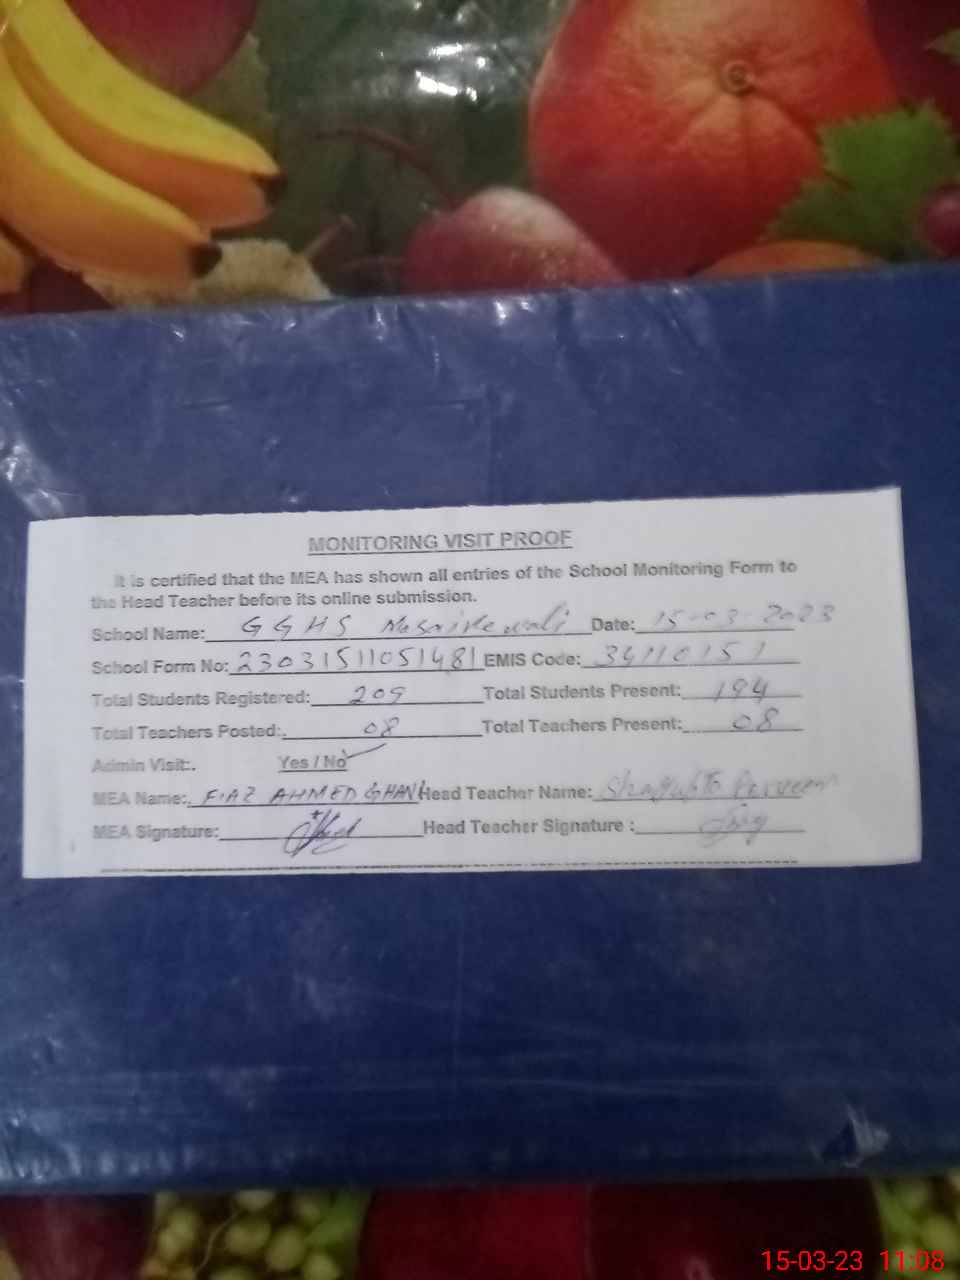 MONITORING VISIT PROOF
It is certified that the MEA has shown all entries of the School Monitoring Form to
the Head Teacher before its online submission.
School Name: GGHS Date: 15-03-2023
School Form No: 23031511051481 EMIS Code: 34110151
Total Students Registered: 209 Total Students Present: 194
Total Teachers Posted: 08 Total Teachers Present: 08
Admin Visit: Yes / No
MEA Name: FIAZ AHMED GHANI Head Teacher Name: Parveen
MEA Signature: Head Teacher Signature :
15-03-23 11:08